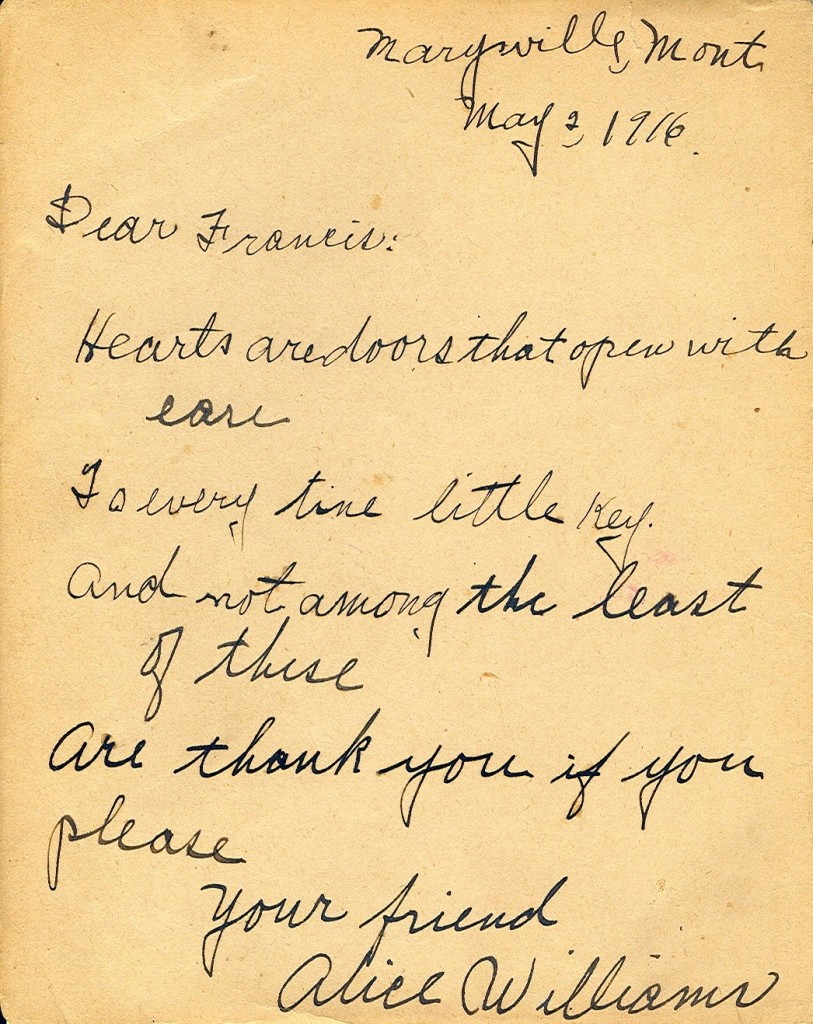 Marysville, Mont.
May 2, 1916.
Dear Francis:
Hearts are doors that open with
ease
To every tine little key.
And not among the least
of these
Are thank you if you
please
Your friend
Alice Williams